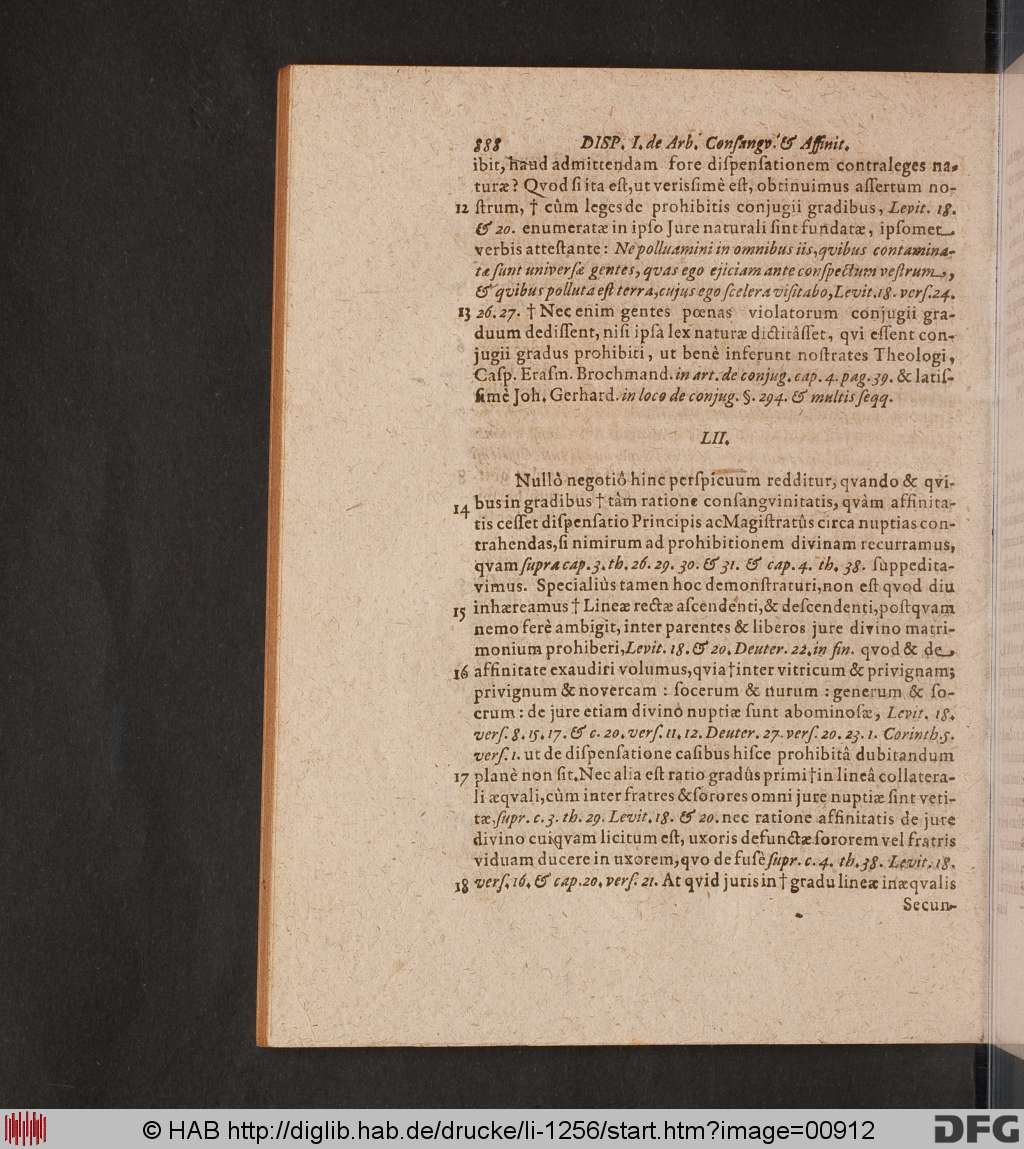 888 DISP. I. de Arb. Conſangv. & Affinit.
ibit, haud admittendam fore diſpenſationem contraleges na-
turæ? Qvod ſi ita eſt, ut verisſimè eſt, obtinuimus aſſertum no-
12 ſtrum, † cûm leges de prohibitis conjugii gradibus, Levit. 18.
& 20. enumeratæ in ipſo Jure naturali ſint fundatæ, ipſomet
verbis atteſtante: Ne polluamini in omnibus iis, qvibus contamina-
tæ ſunt univerſæ gentes, qvas ego ejiciam ante conſpectum veſtrum,
& qvibus polluta eſt terra, cujus ego ſcelera viſitabo, Levit. 18. verſ. 24.
13 26. 27. † Nec enim gentes pœnas violatorum conjugii gra-
duum dediſſent, niſi ipſa lex naturæ dictitâſſet, qvi eſſent con-
jugii gradus prohibiti, ut benè inferunt noſtrates Theologi,
Caſp. Eraſm. Brochmand. in art. de conjug. cap. 4. pag. 39. & latiſ-
ſimè Joh. Gerhard. in loco de conjug. §. 294. & multis ſeqq.
LII.
Nullô negotiô hinc perſpicuum redditur, qvando & qvi-
14 bus in gradibus † tâm ratione conſangvinitatis, qvàm affinita-
tis ceſſet diſpenſatio Principis ac Magiſtratûs circa nuptias con-
trahendas, ſi nimirum ad prohibitionem divinam recurramus,
qvam ſupra cap. 3. th. 26. 29. 30. & 31. & cap. 4. th. 38. ſuppedita-
vimus. Specialiùs tamen hoc demonſtraturi, non eſt qvod diu
15 inhæreamus † Lineæ rectæ aſcendenti, & deſcendenti, poſtqvam
nemo ferè ambigit, inter parentes & liberos jure divino matri-
monium prohiberi, Levit. 18. & 20. Deuter. 22. in fin. qvod & de
16 affinitate exaudiri volumus, qvia † inter vitricum & privignam;
privignum & novercam : ſocerum & nurum : generum & ſo-
crum : de jure etiam divinô nuptiæ ſunt abominoſæ, Levit. 18.
verſ. 8. 15. 17. & c. 20. verſ. 11. 12. Deuter. 27. verſ. 20. 23. 1. Corinth. 5.
verſ. 1. ut de diſpenſatione caſibus hiſce prohibitâ dubitandum
17 planè non ſit. Nec alia eſt ratio gradûs primi † in lineâ collatera-
li æqvali, cùm inter fratres & ſorores omni jure nuptiæ ſint veti-
tæ, ſupr. c. 3. th. 29. Levit. 18. & 20. nec ratione affinitatis de jure
divino cuiqvam licitum eſt, uxoris defunctæ ſororem vel fratris
viduam ducere in uxorem, qvo de fuſè ſupr. c. 4. th. 38. Levit. 18.
18 verſ. 16. & cap. 20. verſ. 21. At qvid juris in † gradu lineæ inæqvalis
Secun-
© HAB http://diglib.hab.de/drucke/li-1256/start.htm?image=00912
DFG